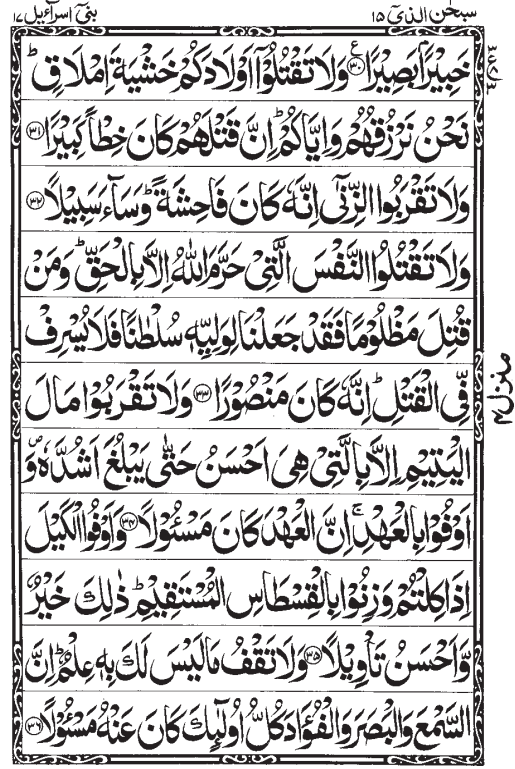 سبحٰن الذیٓ ۱۵
بنیٓ اسرآءیل ۱۷
خَبِیْرًۢا بَصِیْرًا ۟۳۰ وَلَا تَقْتُلُوْۤا اَوْلَادَكُمْ خَشْیَةَ اِمْلَاقٍ ؕ
نَحْنُ نَرْزُقُهُمْ وَاِیَّاكُمْ ؕ اِنَّ قَتْلَهُمْ كَانَ خِطْاً كَبِیْرًا ۳۱
وَلَا تَقْرَبُوا الزِّنٰۤی اِنَّهٗ كَانَ فَاحِشَةً ؕ وَسَآءَ سَبِیْلًا ۳۲
وَلَا تَقْتُلُوا النَّفْسَ الَّتِیْ حَرَّمَ اللّٰهُ اِلَّا بِالْحَقِّ ؕ وَمَنْ
قُتِلَ مَظْلُوْمًا فَقَدْ جَعَلْنَا لِوَلِیِّهٖ سُلْطٰنًا فَلَا یُسْرِفْ
فِّی الْقَتْلِ ؕ اِنَّهٗ كَانَ مَنْصُوْرًا ۳۳ وَلَا تَقْرَبُوْا مَالَ
الْیَتِیْمِ اِلَّا بِالَّتِیْ هِیَ اَحْسَنُ حَتّٰی یَبْلُغَ اَشُدَّهٗ ۪ وَ
اَوْفُوْا بِالْعَهْدِ ۚ اِنَّ الْعَهْدَ كَانَ مَسْـُٔوْلًا ۳۴ وَاَوْفُوا الْكَیْلَ
اِذَا كِلْتُمْ وَزِنُوْا بِالْقِسْطَاسِ الْمُسْتَقِیْمِ ؕ ذٰلِكَ خَیْرٌ
وَّاَحْسَنُ تَاْوِیْلًا ۳۵ وَلَا تَقْفُ مَا لَیْسَ لَكَ بِهٖ عِلْمٌ ؕ اِنَّ
السَّمْعَ وَالْبَصَرَ وَالْفُؤَادَ كُلُّ اُولٰٓئِكَ كَانَ عَنْهُ مَسْـُٔوْلًا ۳۶
منزل ۴